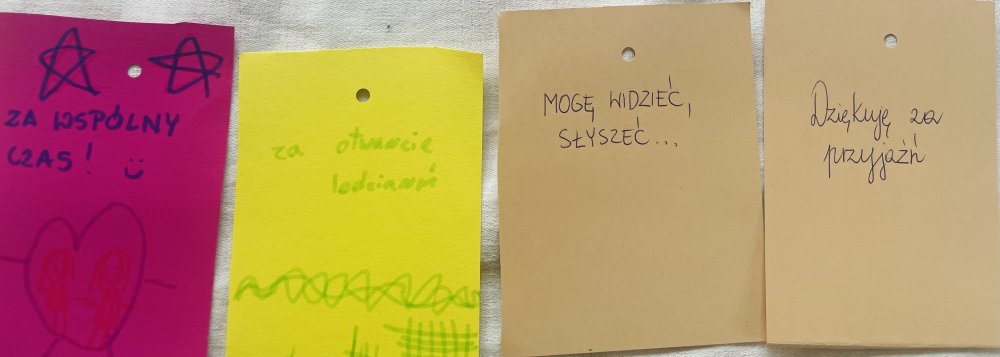 ZA WSPÓLNY
CZAS!
za otwarcie
MOGĘ WIDZIEĆ,
SŁYSZEĆ...
Dziękuję za
przyjaźń